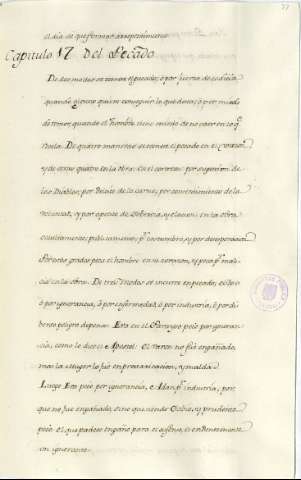 el dia de que formar arrepentimiento
Capitulo 17 del Pecado
De dos modos se comete el pecado, ó por fuerza de codicia
quando quiere quien conseguir lo que desea; ó por miedo
de temor, quando el hombre tiene miedo de no caer en lo q.
De quatro maneras se comete el pecado en el Corazon
y de otras quatro en la obra: en el corazon por sugestion de
los Diablos; por deleite de la carne; por consentimiento de la
voluntad, y por defensa de soberbia, y elacion: en la obra
ocultamente; publicamente; p.r costumbre, y por desesperacion
Por estos grados peca el hombre en su corazon, y peca p.r mali-
cia en la obra. De tres modos se incurre en pecado, esto es
ó por ignorancia, ó por enfermedad, ó por industria, ó por di-
peligro de pena. Eva en el Parayso pecó por ignoran-
cia, como lo dice el Apostol: El varon no fué engañado,
mas la Muger lo fué en prevaricacion, y maldad.
Luego Eva pecó por ignorancia, e Adan p.r industria, por
que no fue engañado, sino que siendo Sabio, y prudente
pecó. El que padece engaño para el assenso, es evidentemente
un ignorante.